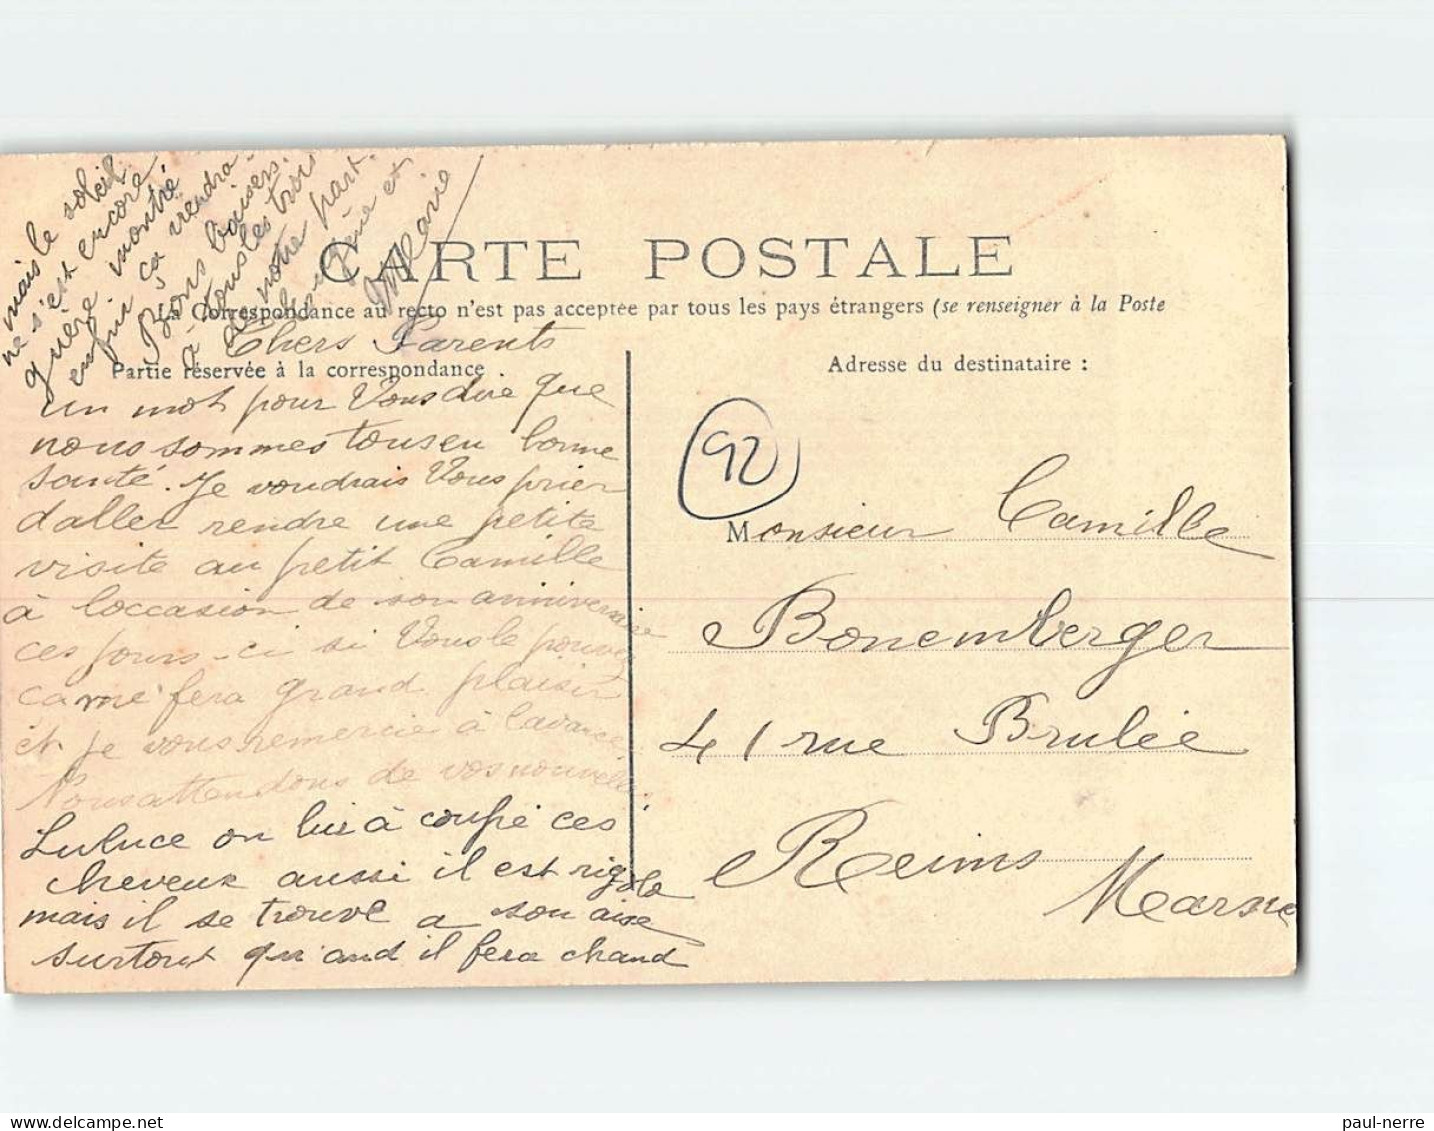 CARTE POSTALE
La Correspondance au recto n'est pas acceptée par tous les pays étrangers (se renseigner à la Poste
Partie réservée à la correspondance
Adresse du destinataire :
Chers Parents
un mot pour Vous dire que
nous sommes tous en bonne
santé. Je voudrais Vous prier
daller rendre une petite
visite au petit Camille
à loccasion de son anniversaire
ces jours-ci si Vous le pouvez
ca me fera grand plaisir
et je vous remercie à lavance
Nous attendons de vos nouvelles
Luluce on lui à coupé ces
cheveux aussi il est rigolo
mais il se trouve a son aise
surtout qu'and il fera chaud
mais le soleil
ne s'est encore
guère montré
enfin ça viendra
Bons baisers
à tous les trois
de notre part.
et
Marie
92
Monsieur Camille
Bonemberger
41 rue Brulée
Reims
Marne
paul-nerre